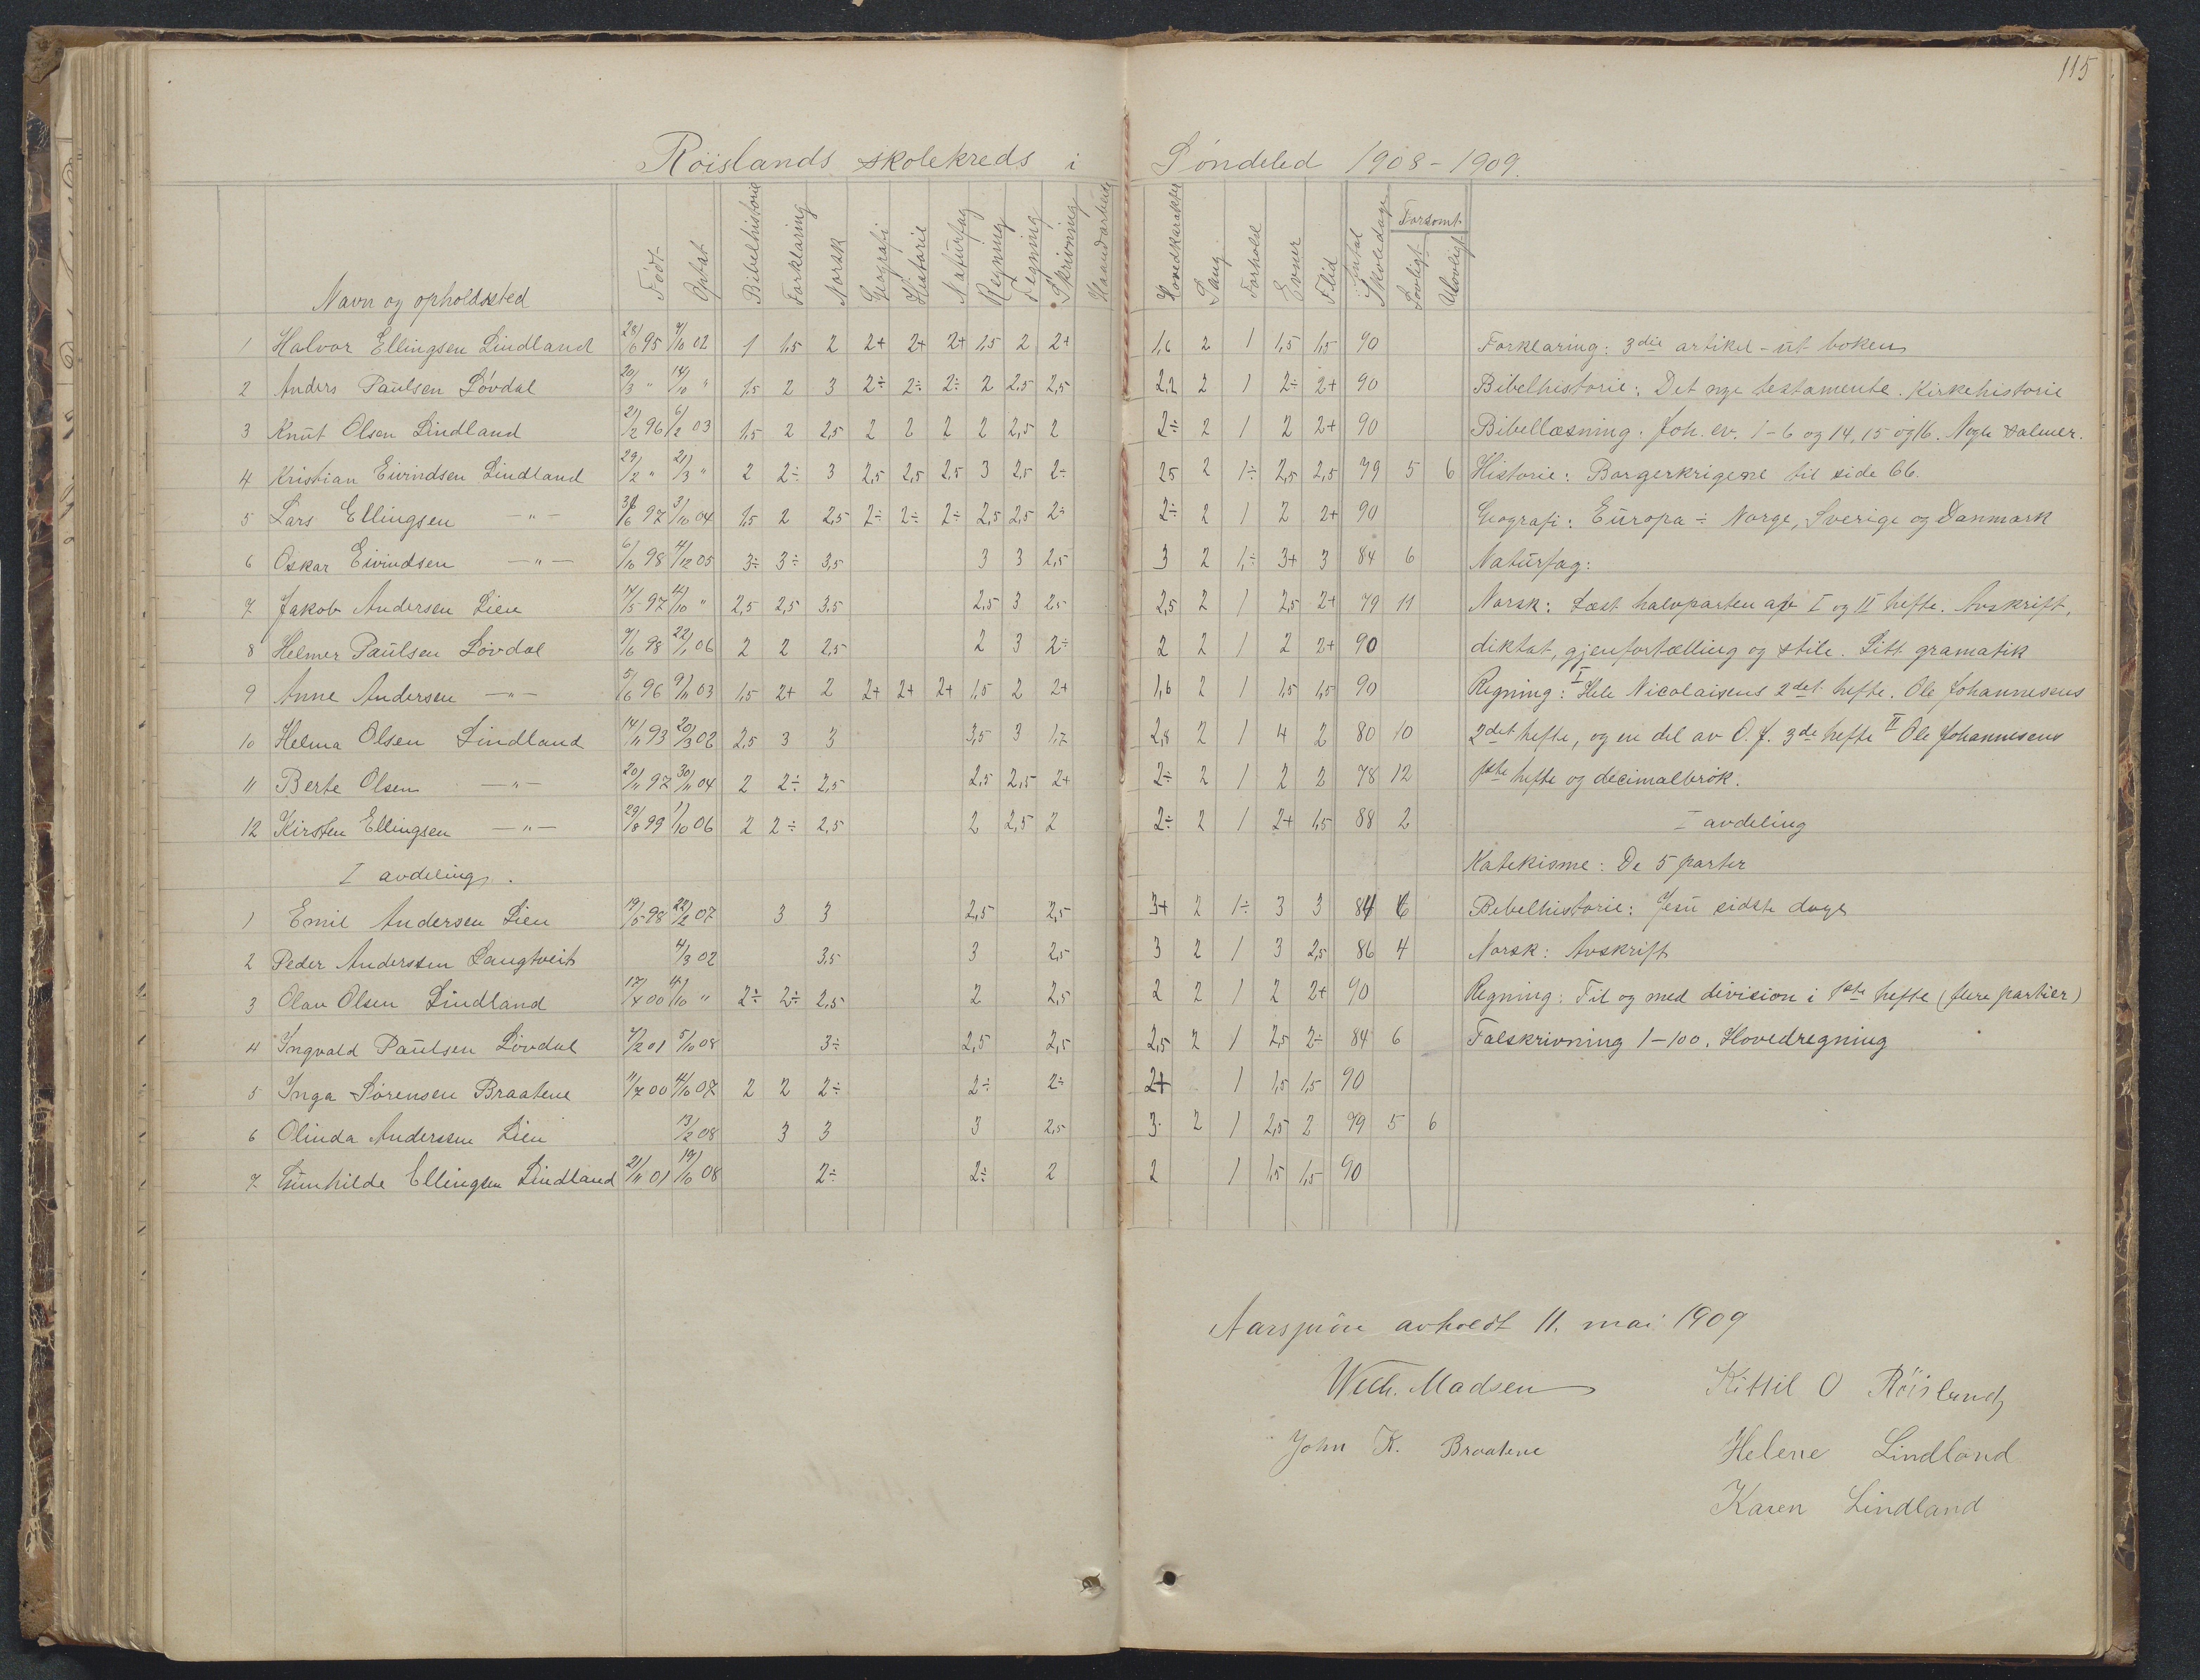 115
Röislands skolekreds i Söndeled 1908-1909.
Navn og opholdssted Født Optat Bibelhistorie Forklaring Norsk Geografi Historie Naturfag Regning Tegning Skrivning Haandarbeide Hovedkarakter Sang Forhold Evner Flid Antal Skoledage Forsømt Lovligt Ulovligt
1 Halvor Ellingsen Lindland 28/6 95 9/10 02 1 1,5 2 2+ 2+ 2+ 1,5 2 2+ 1,6 2 1 1,5 1,5 90 Forklaring: 3die artikel - ut boken
2 Anders Paulsen Løvdal 20/3 " 14/10 " 1,5 2 3 2÷ 2÷ 2÷ 2 2,5 2,5 2,2 2 1 2÷ 2+ 90 Bibelhistorie: Det nye testamente. Kirkehistorie
3 Knut Olsen Lindland 21/2 96 6/2 03 1,5 2 2,5 2 2 2 2 2,5 2 2÷ 2 1 2 2+ 90 Bibellæsning: Joh. ev. 1-6 og 14, 15 og 16. Nogle salmer.
4 Kristian Eivindsen Lindland 29/2 " 21/3 " 2 2÷ 3 2,5 2,5 2,5 3 2,5 2÷ 2,5 2 1÷ 2,5 2,5 79 5 6 Historie: Borgerkrigene til side 66.
5 Lars Ellingsen -"- 97 3/10 04 1,5 2 2,5 2÷ 2÷ 2÷ 2,5 2,5 2÷ 2÷ 2 1 2 2+ 90 Geografi: Europa ÷ Norge, Sverige og Danmark
6 Oskar Eivindsen -"- 6/10 98 4/12 05 3÷ 3÷ 3,5 3 3 2,5 3 2 1÷ 3+ 3 84 6 Naturfag:
7 Jakob Andersen Lien 14/5 97 4/10 " 2,5 2,5 3,5 2,5 3 2,5 2,5 2 1 2,5 2+ 79 11 Norsk: Læst halvparten af I og II hefte. Avskrift,
8 Helmer Paulsen Løvdal 9/6 98 22/1 06 2 2 2,5 2 3 2÷ 2 2 1 2 2+ 90 diktat, gjenfortælling og stile. Litt gramatik
9 Anne Andersen -"- 5/6 96 9/11 03 1,5 2+ 2 2+ 2+ 2+ 1,5 2 2+ 1,6 2 1 1,5 1,5 90 Regning: I Hele Nicolaisens 2det hefte. Ole Johannesens
10 Helma Olsen Lindland 14/11 93 20/3 02 2,5 3 3 3,5 3 1,7 2,8 2 1 4 2 80 10 2det hefte, og en del av O. J. 3de hefte II Ole Johannesens
11 Berte Olsen -"- 20/11 97 30/11 04 2 2÷ 2,5 2,5 2,5 2+ 2÷ 2 1 2 2 78 12 1ste hefte og decimalbrøk.
12 Kirsten Ellingsen -"- 29/8 99 1/10 06 2 2÷ 2,5 2 2,5 2 2÷ 2 1 2+ 1,5 88 2 I avdeling
I avdeling. Katekisme: De 5 parter
1 Emil Andersen Lien 19/5 98 22/2 07 3 3 2,5 2,5 3+ 2 1÷ 3 3 84 6 Bibelhistorie: Jesu sidste dage
2 Peder Anderssen Langtveit 4/3 02 3,5 3 2,5 3 2 1 3 2,5 86 4 Norsk: Avskrift
3 Olav Olsen Lindland 17/7 00 4/10 " 2÷ 2÷ 2,5 2 2,5 2 2 1 2 2+ 90 Regning: Til og med division i 1ste hefte (flere partier)
4 Ingvald Paulsen Løvdal 7/2 01 5/10 08 3÷ 2,5 2,5 2,5 2 1 2,5 2÷ 84 6 Talskrivning 1-100. Hovedregning
5 Inga Sørensen Braatene 11/7 00 4/10 07 2 2 2÷ 2÷ 2÷ 2+ 1 1,5 1,5 90
6 Olinda Anderssen Lien 13/2 08 3 3 3 2,5 3 2 1 2,5 2 79 5 6
7 Gunhilde Ellingsen Lindland 21/11 01 19/10 08 2÷ 2÷ 2 2 1 1,5 1,5 90
Aarsprøve avholdt 11. mai 1909
Wilh. Madsen Kittil O Röisland
John K. Braatene Helene Lindland
Karen Lindland